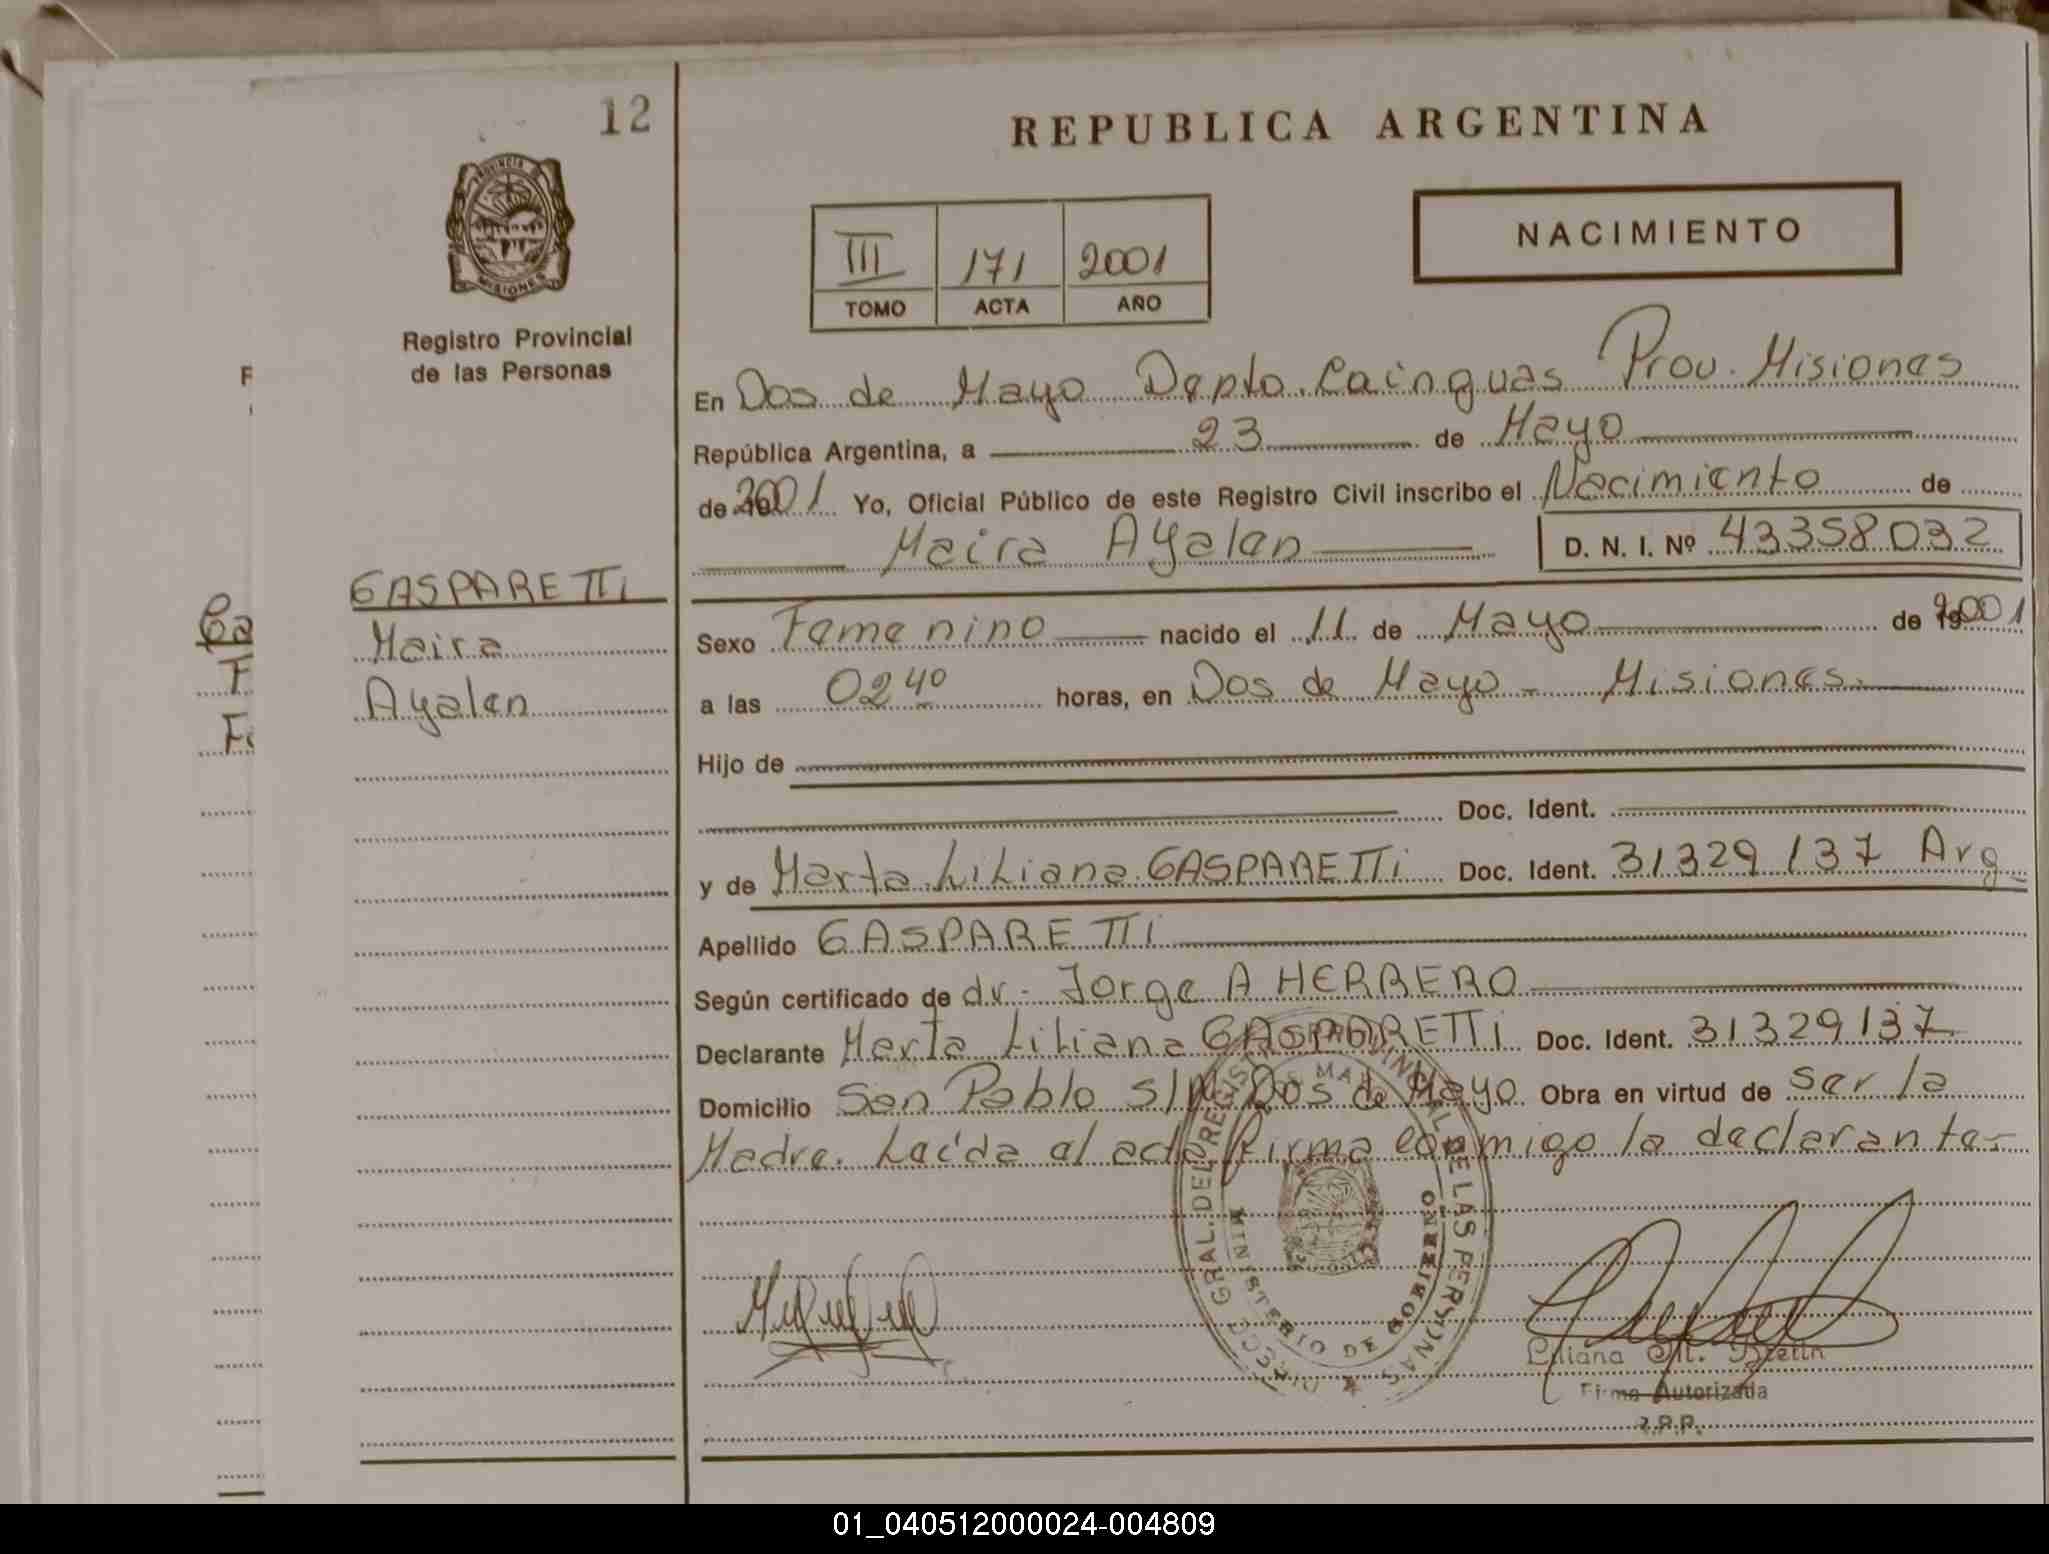 12
PROVINCIA DE
MISIONES
Registro Provincial
de las Personas
GASPARETTi
Maira
Ayelen
REPUBLICA ARGENTINA
III 171 2001
TOMO ACTA AÑO
NACIMIENTO
En Dos de Mayo Depto. Cainguas Prov. Misiones
República Argentina, a 23 de Mayo
de 2001 Yo, Oficial Público de este Registro Civil inscribo el Nacimiento de
Maira Ayelen D. N. I. Nº 43358032
Sexo Femenino nacido el 11 de Mayo de 2001
a las 02 40 horas, en Dos de Mayo - Misiones.
Hijo de
Doc. Ident.
y de Marta Liliana GASPARETTi Doc. Ident. 31329137 Arg.
Apellido GASPARETTi
Según certificado de dr. Jorge A HERRERO
Declarante Marta Liliana GASPARETTi Doc. Ident. 31329137
Domicilio San Pablo S/Nº Dos de Mayo Obra en virtud de ser la
Madre. Leída el acta firma conmigo la declarante-
DIRECC. GRAL. DEL REGISTRO PROVINCIAL DE LAS PERSONAS
MINISTERIO DE GOBIERNO
Liliana M.
Firma Autorizada
R.P.P.
01_040512000024-004809